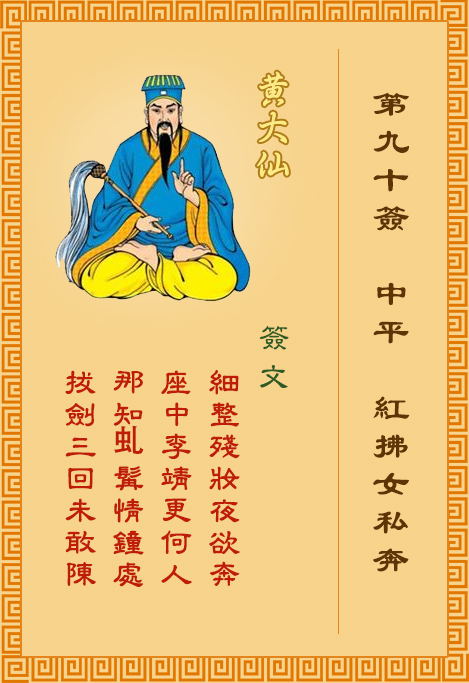 第九十簽 中平 紅拂女私奔
黄大仙
簽文
細整殘妝夜欲奔
座中李靖更何人
那知虬髯情鐘處
拔劍三回未敢陳